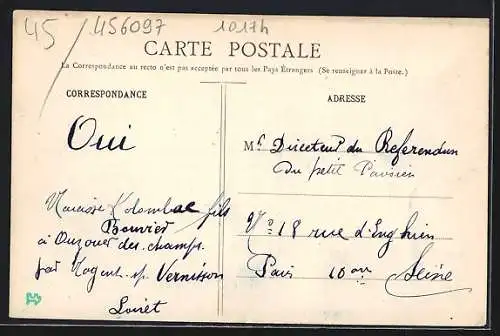 45 / 456097 1017h
CARTE POSTALE
La Correspondance au recto n'est pas acceptée par tous les Pays Étrangers (Se renseigner à la Poste.)
CORRESPONDANCE
Oui
Narcisse Kolombac fils
à Ouzouer des champs
par Nogent s/ Vernisson
Loiret
ADRESSE
Mr Directeur du Referendum
du petit Parisien
18 rue d'Enghien
Paris 10em Seine